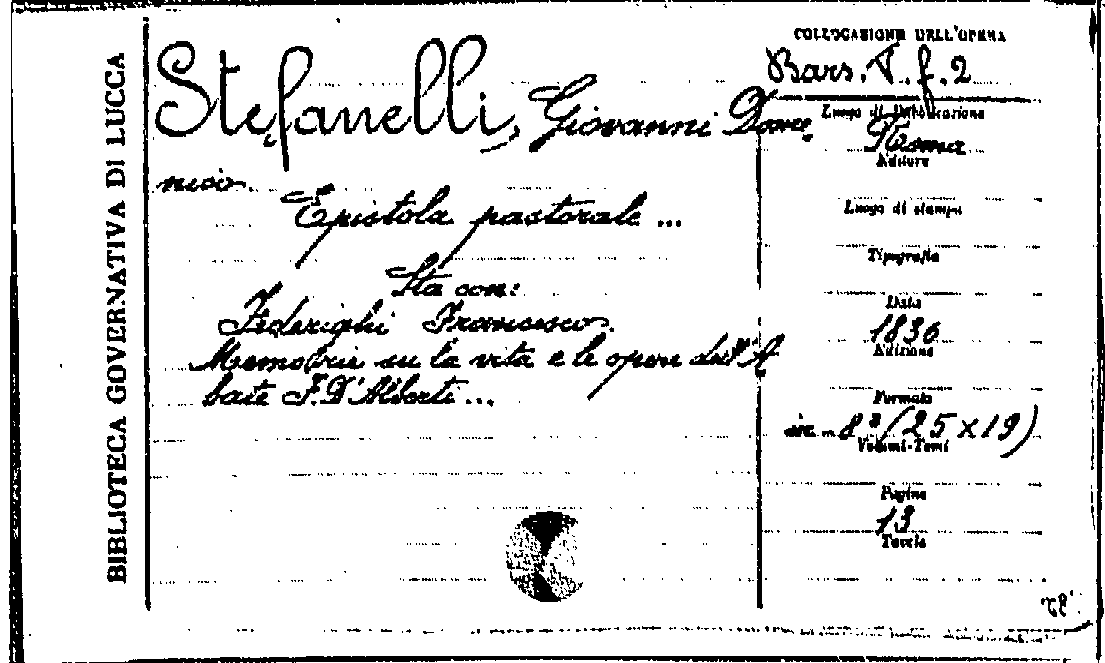 BIBLIOTECA GOVERNATIVA DI LUCCA
Stefanelli, Giovanni Dome
nico.
Epistola pastorale ...
Sta con:
Federighi Francesco.
Memorie su la vita e le opere dell'A
bate F. D'Alberti ...
COLLOCAZIONE DELL'OPERA
Bars. T. f. 2
Luogo di Pubblicazione
Roma
Editore
Luogo di stampa
Tipografia
Data
1830
Edizione
Formato
in 8º (25 x 19)
Volumi-Tomi
Pagine
13
Tavole